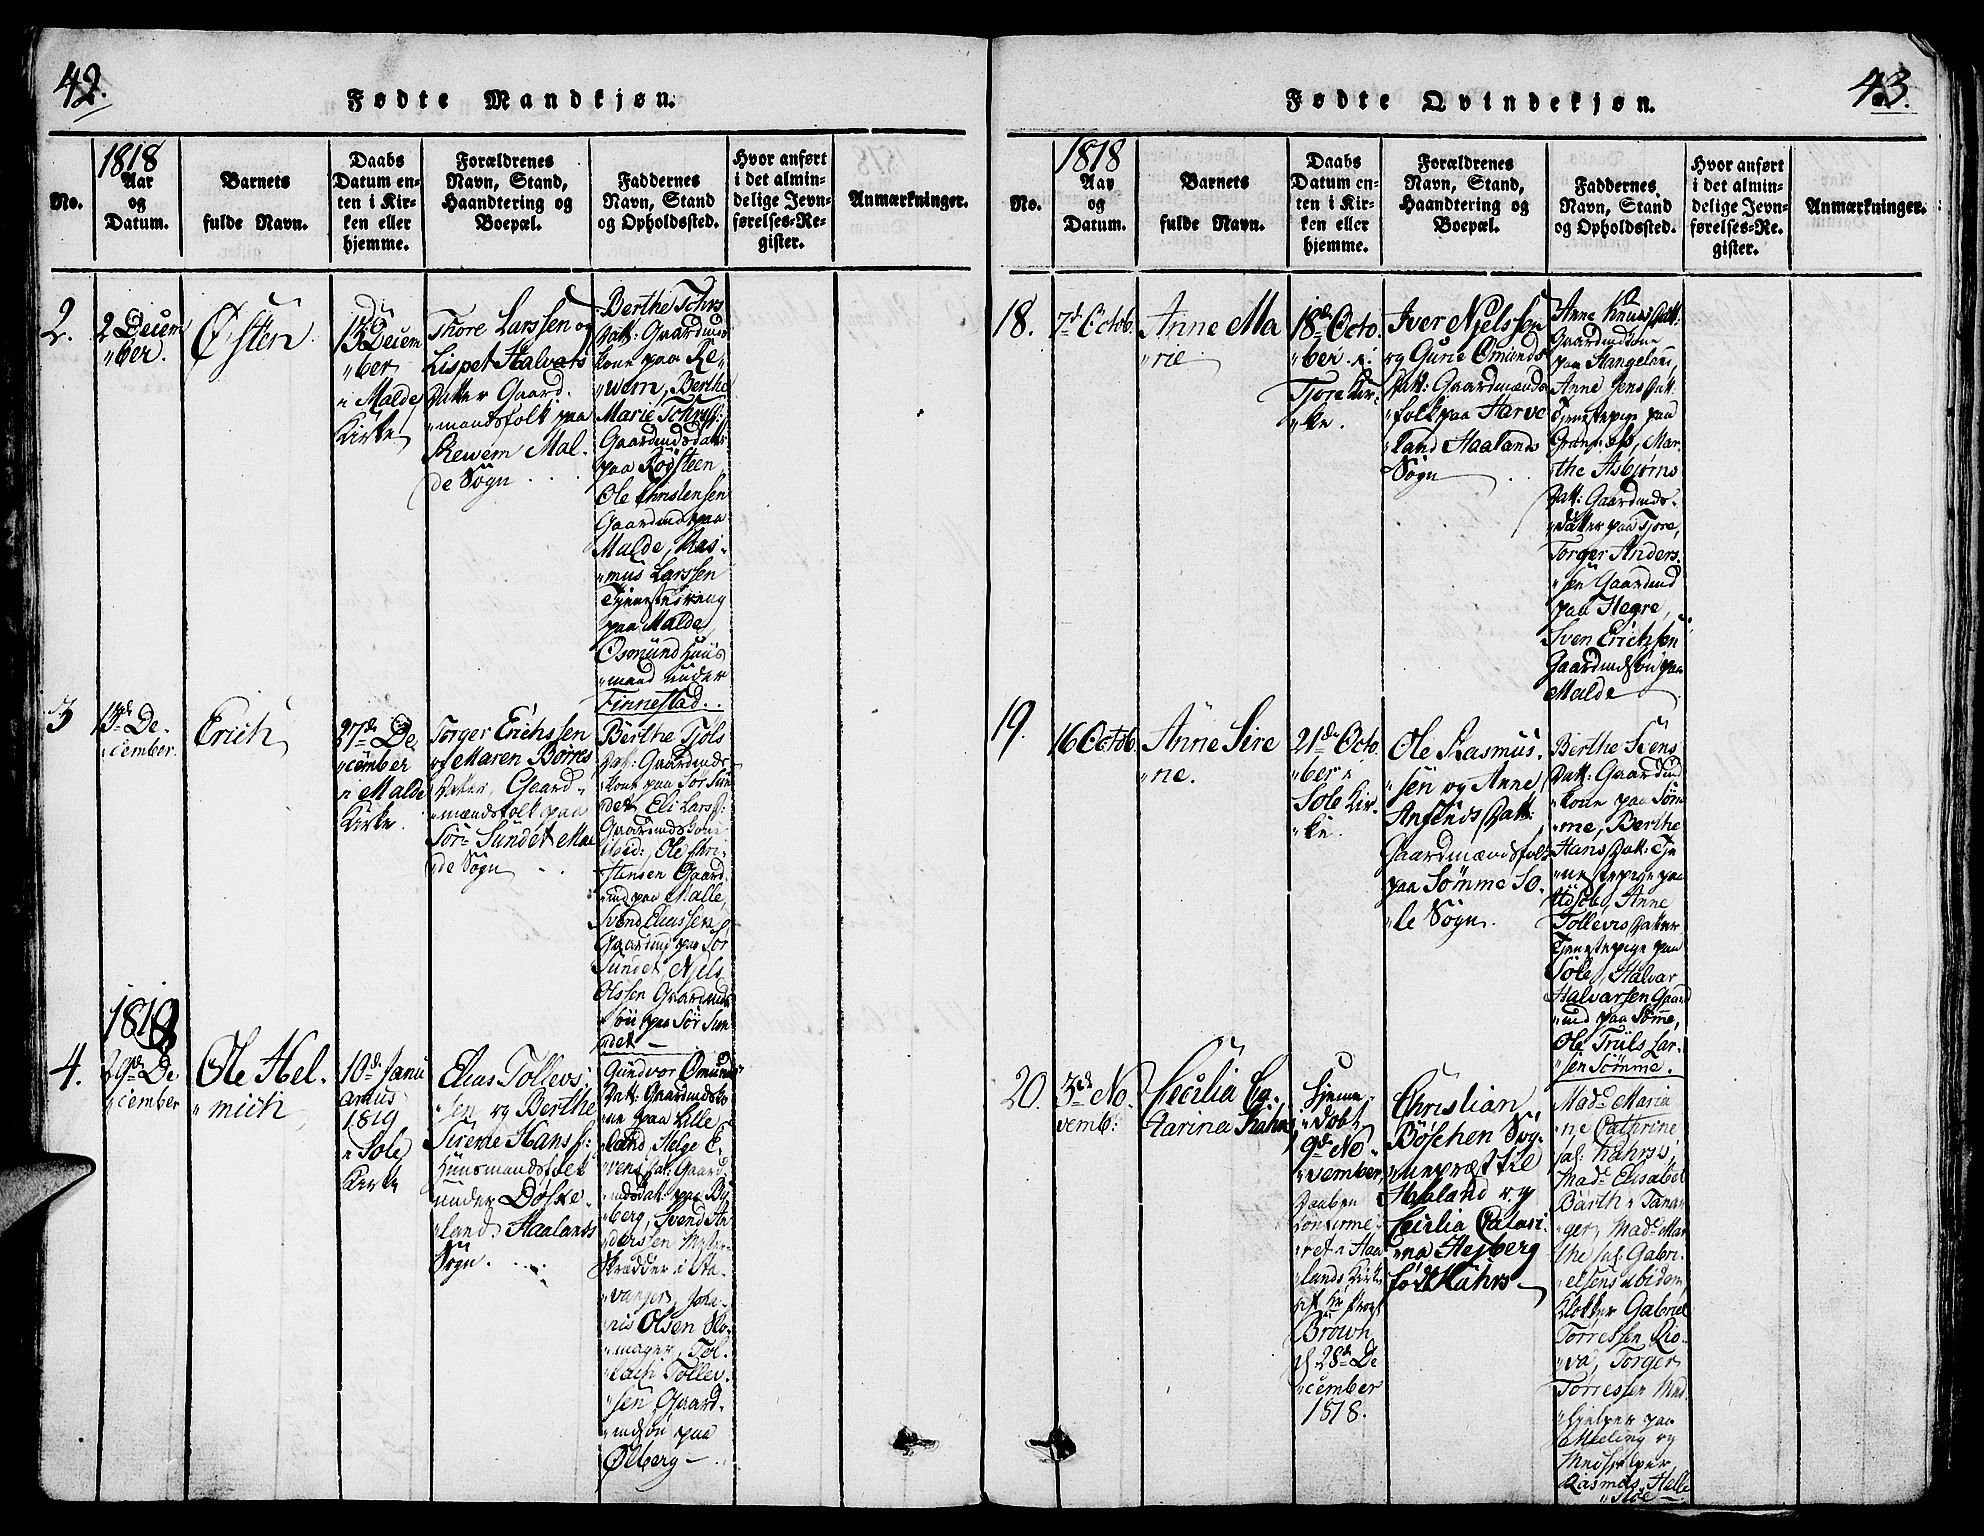 42.
Fødte Mandkjøn.
No.
1818
Aar
og
Datum.
Barnets
fulde Navn.
Daabs
Datum en-
ten i Kir-
ken eller
hjemme.
Forældrenes
Navn, Stand,
Haandtering og
Boepæl.
Faddernes
Navn, Stand
og Opholdssted.
Hvor anført
i det almin-
delige Jevn-
førelses-Re-
gister.
Anmærkninger.
2.
2 Decem
"ber.
Østen
13 Decem
"ber
i Malde
Kirke
Thore Larssen og
Lispet Halvars
Datter Gaard.
"mandsfolk paa
Skewem Mal-
de Sogn
Berthe
Datt: Gaardmds
kone paa Re"
"wem, Berthe
Marie
Gaardmdsdatt:
paa
Ole Christensen
Gaardmd paa
Malde, Ras-
"mus Larssen
Tjenestedreng
paa Malde,
Osmund Huus
"mand under
Finnestad..
3
13d De-
"cember.
Erich
27de De
"cember
i Malde
Kirke.
Torger Erichssen
og Maren Børres
Datter, Gaard"
"mændsfolk paa
Sør-Sundet Mal
"de Sogn
Berthe
Datt: Gaardmds
kone paa Sør Sun
det, Eli Larsd:
Gaardmdskone
ibid:, Ole Chri-
stensen Gaard
"md paa Malle,
Svend Eliassen
Gaardmd paa Sør
Sundet, Njels
Olssen Gaardmds
søn paa Sør Sun
"det —
1818
4.
29de De
"cember
Ole Hel.
"mich
10de Janu
arius
1819
i Sole
Kirke
Elias Tollevs
"sen og Berthe
Sirene Hans d:
Huusmandsfolk
under
"land Haalands
Sogn.
Gundvor Omunds
Datt: Gaardmdsko
ne paa Lille
land, Helge E-
vens Dat: Gaard
"mdsdat: paa By
"berg, Svend An
"derssen Mester
Skrædder i Sta
"vanger, Joha-
"nis Olsen Sko-
"mager, Tol-
"lach Tollev-
"sen Gaard.
"mdsøn paa
Ølberg —
43.
Fødte Qvindekjøn.
No.
1818
Aar
og
Datum.
Barnets
fulde Navn.
Daabs
Datum en-
ten i Kir-
ken eller
hjemme.
Forældrenes
Navn, Stand,
Haandtering og
Boepæl.
Faddernes
Navn, Stand
og Opholdssted.
Hvor anført
i det almin-
delige Jevn-
førelses-Re-
gister.
Anmærkninger.
18.
7de Octob.
Anne Ma
"rie.
18de Octo.
"ber i
Tjore Kir-
"ke.
Iver Njelssen
og Gurie Omunds
Datt: Gaardmænds
"folk paa Harve
"land Haalands
Sogn
Anne Knuds Datt:
Gaardmdskone
paa Stangeland,
Anne Jens Datt:
Tjenestepige paa
Mar
the Asbjørns
Datt: Gaardmds-
"datter paa Tjore,
Torger Anders
"sen Gaardmd
paa Hegre,
Sven Erichsen
Gaardmdsøn paa
Malde
19.
16 Octob.
Anne Sire
"ne.
21de Octo.
"ber i
Sole Kir-
"ke.
Ole Rasmus
"sen og Anne
Datt:
Gaardmændsfolk
paa Sømme So-
"le Sogn.
Berthe Svens
Datt: Gaardmd
"kone paa Søm
"me, Berthe
Hans Datt: Tje
"nestepige paa
Anne
Tollevs Datter
Tjenestepige paa
Sole, Halvar
Halvarsen Gaard
"md paa Sømme,
Ole Truls Lar-
"sen Sømme.
20.
3de No
vemb:
Cecilia Ca-
tarina Kahrs
hjeme
døbt
9de No
"vember,
Daaben
Confirme-
"ret i Haa
"lands Kirke
af Hr Provst
Brown
d 28de De
"cember
1818.
Christian
Böschen Sog-
"nepræst til
Haaland og
Cecilia Catari
"na Hejberg
født Kahrs —
Mad: Maria
"ne Cathrine
sal: Kahrs,
Mad: Elisabet
Barth i Tanan
"ger, Mad: Mar
the sal: Gabri-
"elsens ibidem,
Klokker Gabriel
Torressen
Torger
Torressen Med
"hjelper paa
Meeling og
Medhjelper
Rasmus Helle
"støe —